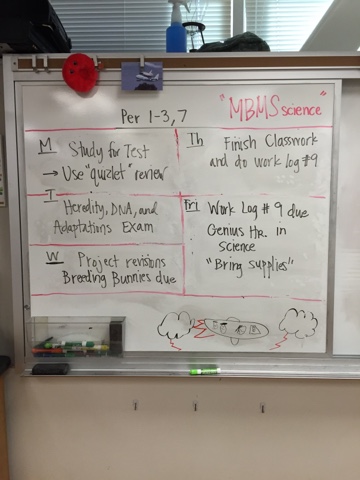 Per 1-3, 7
"MBMS science"
M Study for Test
→ Use "quizlet" review
T Heredity, DNA, and
Adaptations Exam
W Project revisions
Breeding Bunnies due
Th Finish Classwork
and do work log #9
Fri Work Log # 9 due
Genius Hr. in
Science
"Bring Supplies"